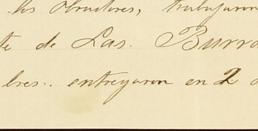 los obradores, trabajaron
te de Las. Burro
bres.. entregaron en 2 d